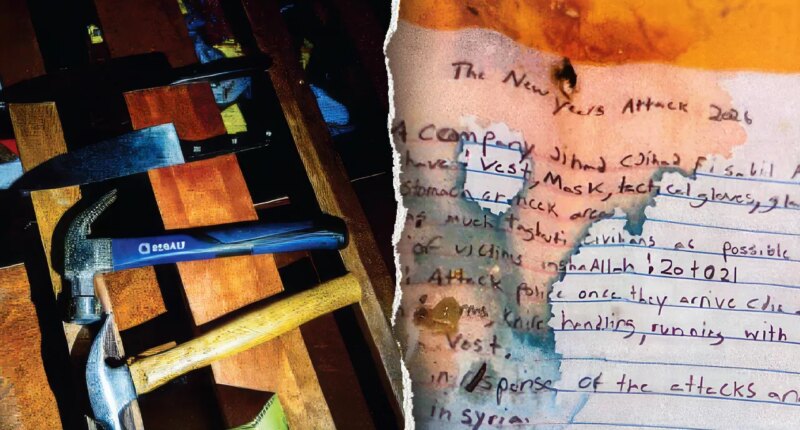 The New
Years Attack 2026
A Company Jihad (Jihad Fi sabil A
have: vest, Mask, tactical gloves,
stomach or neck area
as much Taghuti civilians as possible
of victims inshaAllah: 20 to 21
: Attack police once they arrive
knife handling, running with
Vest.
of the attacks an
in Syria.